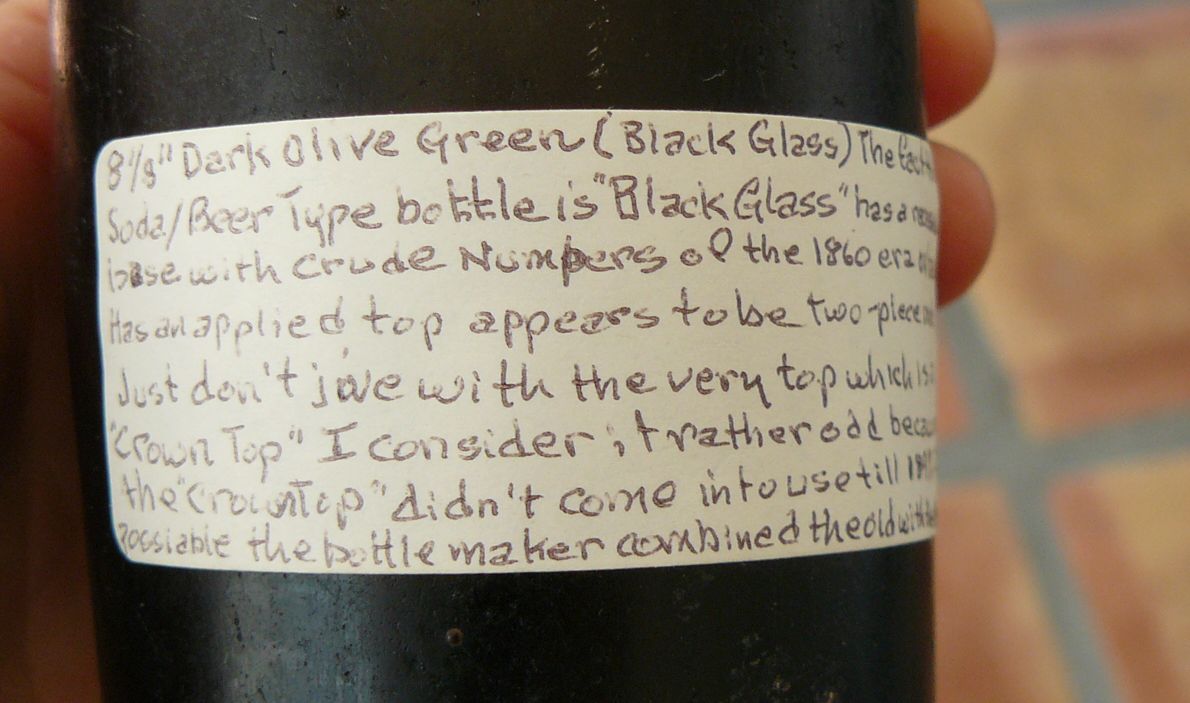 8⅛" Dark Olive Green (Black Glass) The fact
Soda/Beer Type bottle is "Black Glass" has a
base with crude Numbers of the 1860 era
Has an applied top appears to be two-piece
Just don't jive with the very top which is
"Crown Top" I consider it rather odd
the "Crown Top" didn't come into use till
Possiable the bottle maker combined the old with